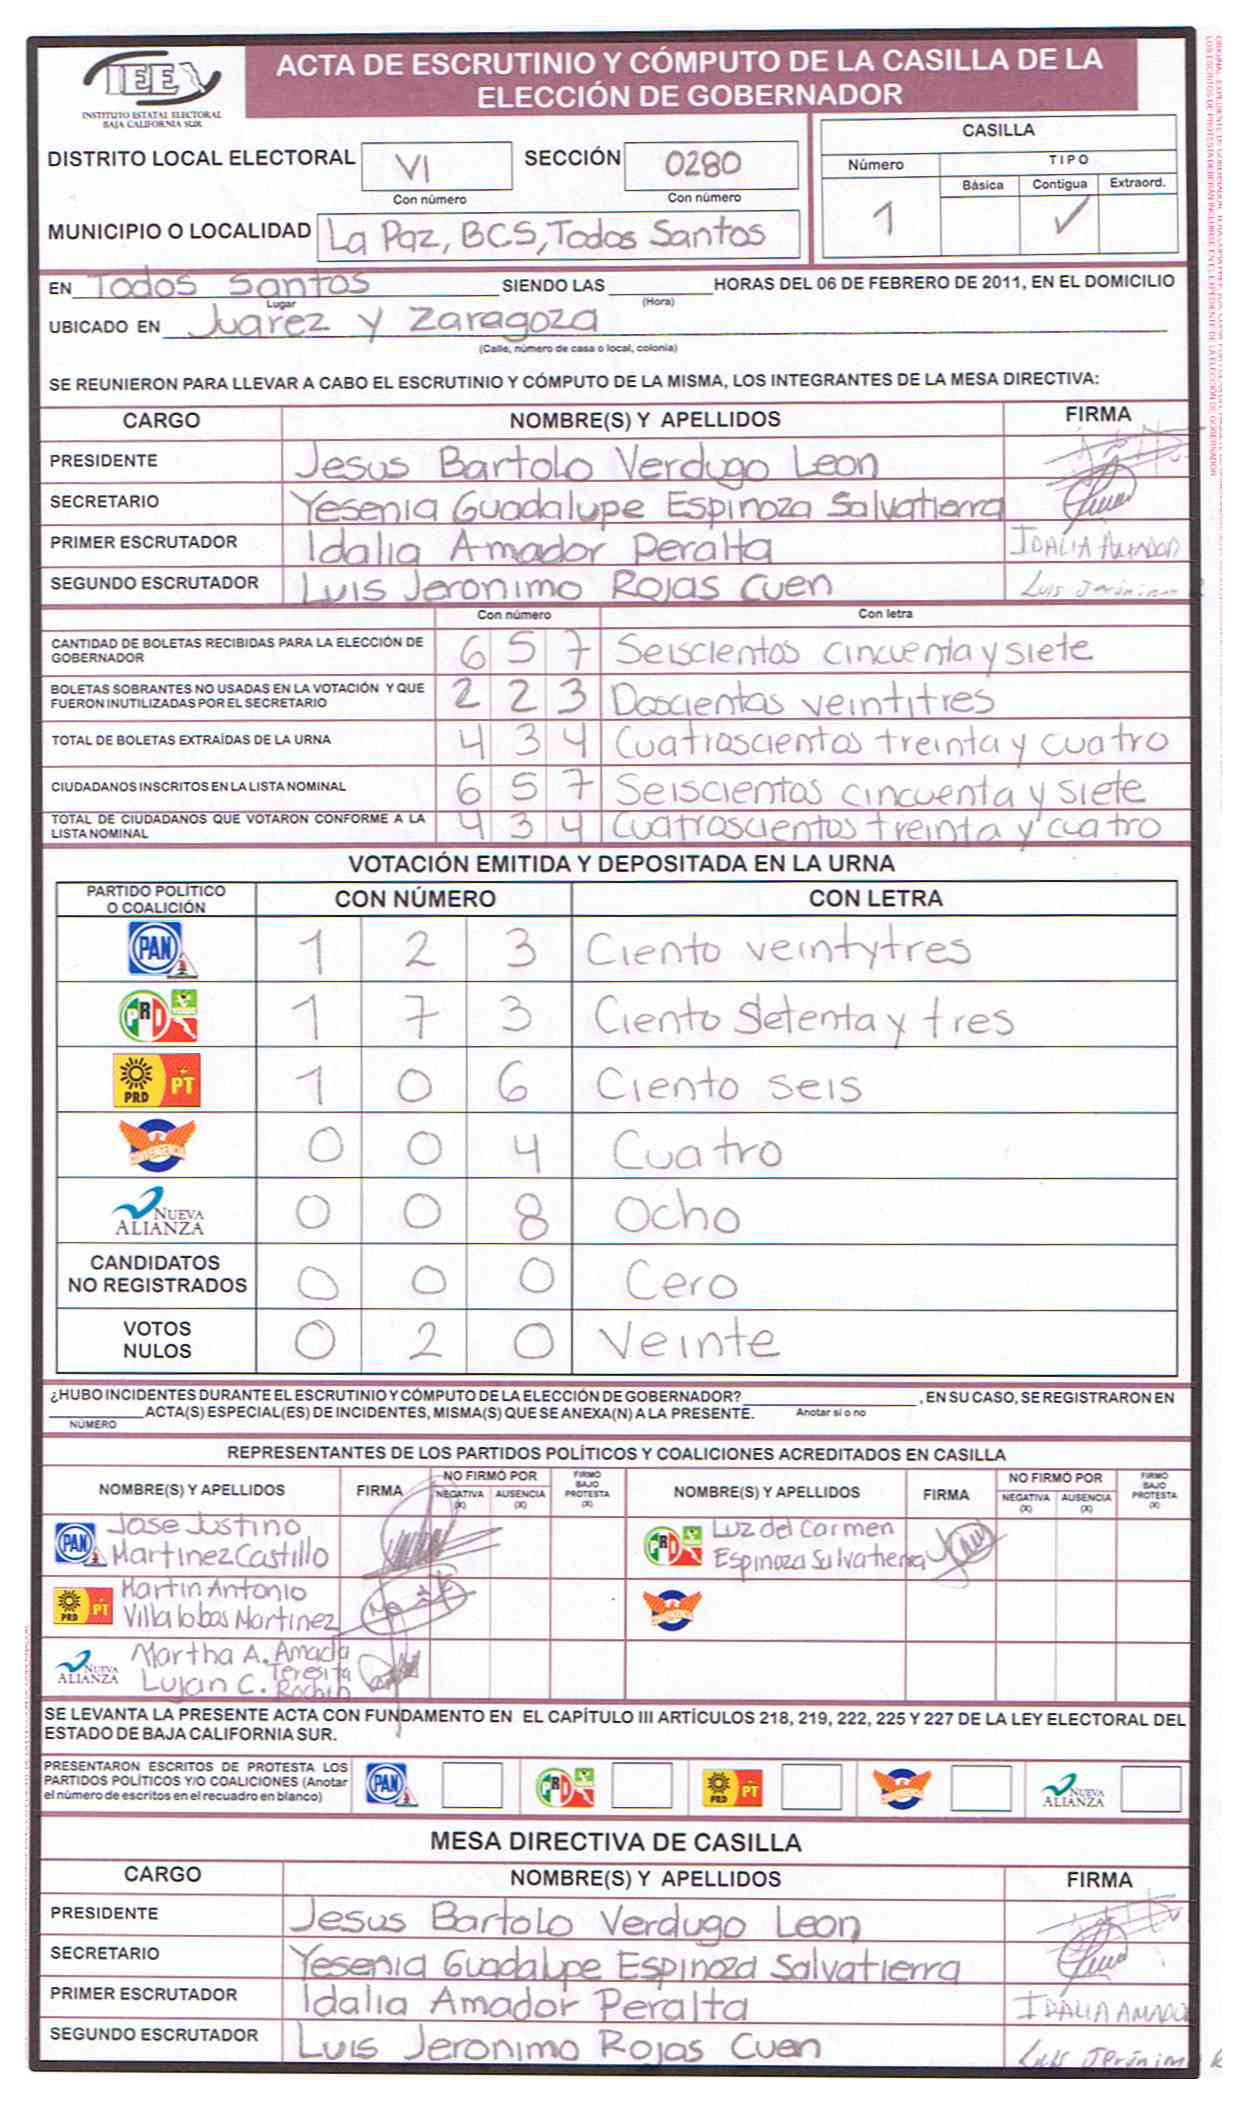 IEE
INSTITUTO ESTATAL ELECTORAL
BAJA CALIFORNIA SUR
ACTA DE ESCRUTINIO Y CÓMPUTO DE LA CASILLA DE LA
ELECCIÓN DE GOBERNADOR
DISTRITO LOCAL ELECTORAL VI SECCIÓN 0280
Con número Con número
MUNICIPIO O LOCALIDAD La Paz, BCS, Todos Santos
CASILLA
Número TIPO
Básica Contigua Extraord.
1 ✓
EN Todos Santos SIENDO LAS ____ HORAS DEL 06 DE FEBRERO DE 2011, EN EL DOMICILIO
Lugar (Hora)
UBICADO EN Juarez y Zaragoza
(Calle, número de casa o local, colonia)
SE REUNIERON PARA LLEVAR A CABO EL ESCRUTINIO Y CÓMPUTO DE LA MISMA, LOS INTEGRANTES DE LA MESA DIRECTIVA:
CARGO NOMBRE(S) Y APELLIDOS FIRMA
PRESIDENTE Jesus Bartolo Verdugo Leon
SECRETARIO Yesenia Guadalupe Espinoza Salvatierra
PRIMER ESCRUTADOR Idalia Amador Peralta IDALIA AMADOR
SEGUNDO ESCRUTADOR Luis Jeronimo Rojas Cuen Luis Jerónimo R
Con número Con letra
CANTIDAD DE BOLETAS RECIBIDAS PARA LA ELECCIÓN DE
GOBERNADOR 6 5 7 Seiscientos cincuenta y siete
BOLETAS SOBRANTES NO USADAS EN LA VOTACIÓN Y QUE
FUERON INUTILIZADAS POR EL SECRETARIO 2 2 3 Doscientos veintitres
TOTAL DE BOLETAS EXTRAÍDAS DE LA URNA 4 3 4 Cuatroscientos treinta y cuatro
CIUDADANOS INSCRITOS EN LA LISTA NOMINAL 6 5 7 Seiscientos cincuenta y siete
TOTAL DE CIUDADANOS QUE VOTARON CONFORME A LA
LISTA NOMINAL 4 3 4 Cuatroscientos treinta y cuatro
VOTACIÓN EMITIDA Y DEPOSITADA EN LA URNA
PARTIDO POLÍTICO
O COALICIÓN CON NÚMERO CON LETRA
PAN 1 2 3 Ciento veintytres
PRI VERDE 1 7 3 Ciento Setenta y tres
PRD PT 1 0 6 Ciento seis
CONVERGENCIA 0 0 4 Cuatro
NUEVA
ALIANZA 0 0 8 Ocho
CANDIDATOS
NO REGISTRADOS 0 0 0 Cero
VOTOS
NULOS 0 2 0 Veinte
¿HUBO INCIDENTES DURANTE EL ESCRUTINIO Y CÓMPUTO DE LA ELECCIÓN DE GOBERNADOR? ____, EN SU CASO, SE REGISTRARON EN
____ ACTA(S) ESPECIAL(ES) DE INCIDENTES, MISMA(S) QUE SE ANEXA(N) A LA PRESENTE. Anotar si o no
NÚMERO
REPRESENTANTES DE LOS PARTIDOS POLÍTICOS Y COALICIONES ACREDITADOS EN CASILLA
NOMBRE(S) Y APELLIDOS FIRMA NO FIRMÓ POR NEGATIVA (X) AUSENCIA (X) FIRMÓ BAJO PROTESTA (X) NOMBRE(S) Y APELLIDOS FIRMA NO FIRMÓ POR NEGATIVA (X) AUSENCIA (X) FIRMÓ BAJO PROTESTA (X)
PAN Jose Justino
Martinez Castillo
PRI Luz del Carmen
Espinoza Salvatierra
PRD PT Martin Antonio
Villalobos Martinez
CONVERGENCIA
NUEVA
ALIANZA Martha A. Amada
Lujan C. Teresita
Rochin
SE LEVANTA LA PRESENTE ACTA CON FUNDAMENTO EN EL CAPÍTULO III ARTÍCULOS 218, 219, 222, 225 Y 227 DE LA LEY ELECTORAL DEL
ESTADO DE BAJA CALIFORNIA SUR.
PRESENTARON ESCRITOS DE PROTESTA LOS
PARTIDOS POLÍTICOS Y/O COALICIONES (Anotar
el número de escritos en el recuadro en blanco)
PAN PRI PRD PT CONVERGENCIA NUEVA ALIANZA
MESA DIRECTIVA DE CASILLA
CARGO NOMBRE(S) Y APELLIDOS FIRMA
PRESIDENTE Jesus Bartolo Verdugo Leon
SECRETARIO Yesenia Guadalupe Espinoza Salvatierra
PRIMER ESCRUTADOR Idalia Amador Peralta IDALIA AMADOR
SEGUNDO ESCRUTADOR Luis Jeronimo Rojas Cuen Luis Jerónimo R